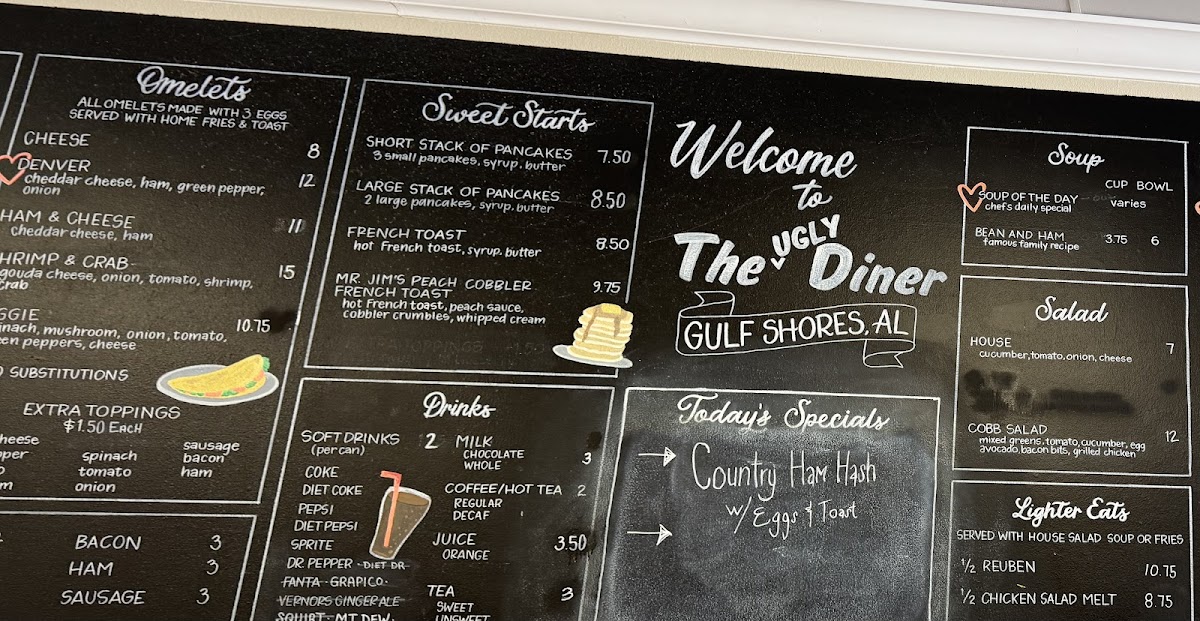 Omelets
ALL OMELETS MADE WITH 3 EGGS
SERVED WITH HOME FRIES & TOAST
CHEESE 8
DENVER 12
cheddar cheese, ham, green pepper,
onion
HAM & CHEESE 11
cheddar cheese, ham
HRIMP & CRAB 15
gouda cheese, onion, tomato, shrimp,
crab
GGIE 10.75
inach, mushroom, onion, tomato,
en peppers, cheese
O SUBSTITUTIONS
EXTRA TOPPINGS
$1.50 EACH
heese
pper
o
m
spinach
tomato
onion
sausage
bacon
ham
BACON 3
HAM 3
SAUSAGE 3
Sweet Starts
SHORT STACK OF PANCAKES 7.50
3 small pancakes, syrup, butter
LARGE STACK OF PANCAKES 8.50
2 large pancakes, syrup, butter
FRENCH TOAST 8.50
hot French toast, syrup, butter
MR. JIM'S PEACH COBBLER 9.75
FRENCH TOAST
hot French toast, peach sauce,
cobbler crumbles, whipped cream
Drinks
SOFT DRINKS 2
(per can)
COKE
DIET COKE
PEPSI
DIET PEPSI
SPRITE
DR PEPPER - DIET DR
FANTA - GRAPICO -
VERNORS GINGER ALE
SQUIRT - MT DEW
MILK 3
CHOCOLATE
WHOLE
COFFEE/HOT TEA 2
REGULAR
DECAF
JUICE 3.50
ORANGE
TEA 3
SWEET
UNSWEET
Welcome
to
The UGLY Diner
GULF SHORES, AL
Today's Specials
→ Country Ham Hash
w/ Eggs & Toast
→
Soup
CUP BOWL
SOUP OF THE DAY varies
chef's daily special
BEAN AND HAM 3.75 6
famous family recipe
Salad
HOUSE 7
cucumber, tomato, onion, cheese
COBB SALAD 12
mixed greens, tomato, cucumber, egg
avocado, bacon bits, grilled chicken
Lighter Eats
SERVED WITH HOUSE SALAD SOUP OR FRIES
½ REUBEN 10.75
½ CHICKEN SALAD MELT 8.75